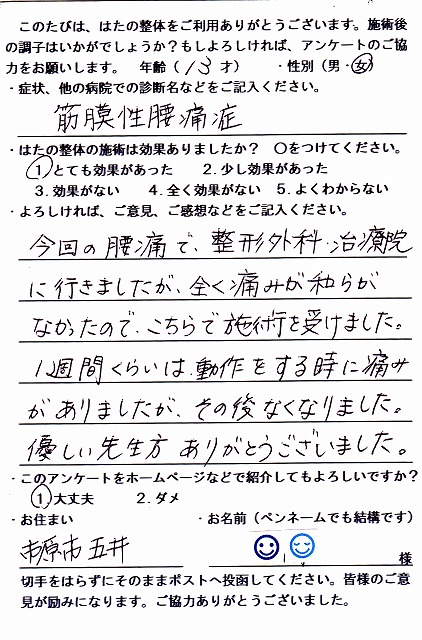 このたびは、はたの整体をご利用ありがとうございます。施術後
の調子はいかがでしょうか？もしよろしければ、アンケートのご協
力をお願いします。 年齢（ 13 才） ・性別（男・女）
・症状、他の病院での診断名などをご記入ください。
筋膜性腰痛症
・はたの整体の施術は効果ありましたか？ 〇をつけてください。
1 とても効果があった 2. 少し効果があった
3. 効果がない 4. 全く効果がない 5. よくわからない
・よろしければ、ご意見、ご感想などをご記入ください。
今回の腰痛で、整形外科・治療院
に行きましたが、全く痛みが和らが
なかったので、こちらで施術を受けました。
1週間くらいは、動作をする時に痛み
がありましたが、その後なくなりました。
優しい先生方 ありがとうございました。
・このアンケートをホームページなどで紹介してもよろしいですか？
1 大丈夫 2. ダメ
・お住まい ・お名前（ペンネームでも結構です）
市原市五井 様
切手をはらずにそのままポストへ投函してください。皆様のご意
見が励みになります。ご協力ありがとうございました。